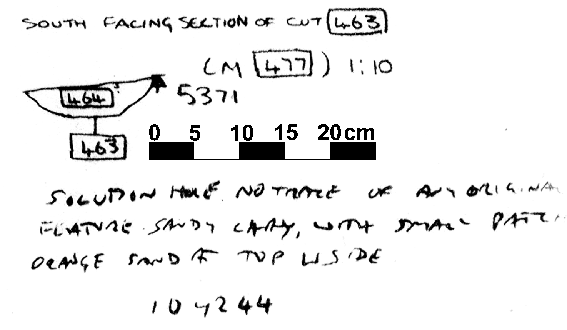 SOUTH FACING SECTION OF CUT 463
(M 477) 1:10
464
5371
463
0 5 10 15 20cm
SOLUTION HOLE NO TRACE OF ANY ORIGINA
FEATURE SANDY CLAY, WITH SMALL PATC
ORANGE SAND AT TOP